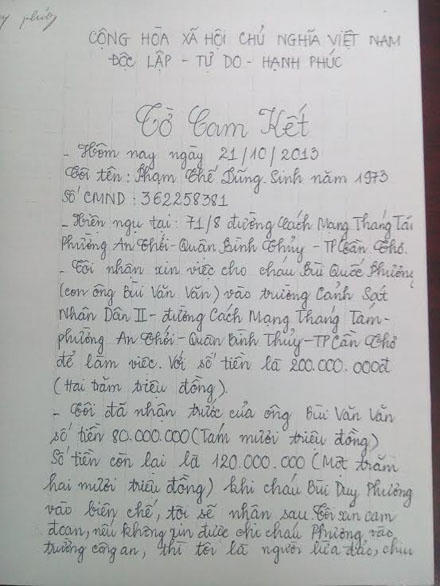 phòng
CỘNG HÒA XÃ HỘI CHỦ NGHĨA VIỆT NAM
ĐỘC LẬP - TỰ DO - HẠNH PHÚC
Tờ Cam Kết
- Hôm nay ngày 21/10/2013
Tôi tên: Phạm Thế Dũng Sinh năm 1973
Số CMND: 362258381
- Hiện ngụ tại: 71/8 đường Cách Mạng Tháng Tám
Phường An Thới - Quận Bình Thủy - TP Cần Thơ.
- Tôi nhận xin việc cho cháu Bùi Quốc Phường
(con ông Bùi Văn Văn) vào trường Cảnh Sát
Nhân Dân II - đường Cách Mạng Tháng Tám-
phường An Thới - Quận Bình Thủy - TP Cần Thơ
để làm việc. Với số tiền là 200.000.000đ
(Hai trăm triệu đồng).
- Tôi đã nhận trước của ông Bùi Văn Văn
số tiền 80.000.000 (Tám mười triệu đồng)
Số tiền còn lại là 120.000.000 (Một trăm
hai mươi triệu đồng) khi cháu Bùi Duy Phường
vào biên chế, tôi sẽ nhận sau Tôi xin cam
đoan, nếu không xin được cho cháu Phường vào
trường công an, thì tôi là người lừa đảo, chịu